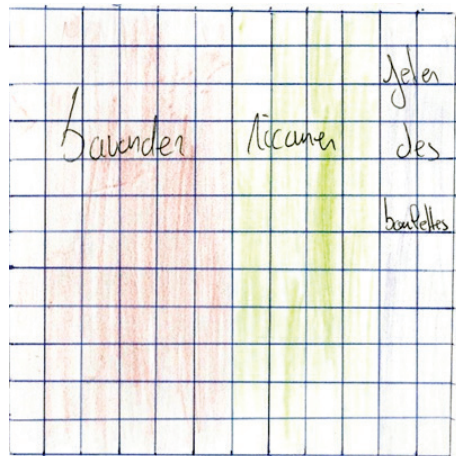 bavarder
ricaner
jeter
des
boulettes